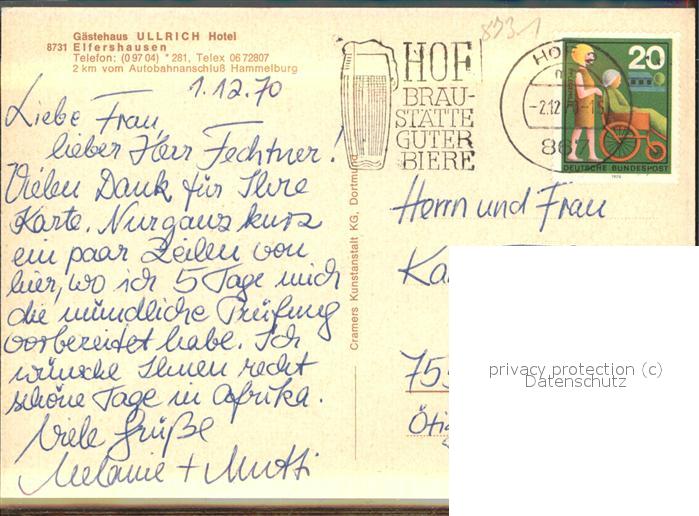 Gästehaus ULLRICH Hotel
8731 Elfershausen
Telefon: (0 97 04) * 281, Telex 06 72807
2 km vom Autobahnanschluß Hammelburg
1.12.70
Liebe Frau,
lieber Herr Fechtner!
Vielen Dank für Ihre
Karte. Nur ganz kurz
ein paar Zeilen von
hier, wo ich 5 Tage mich
die mündliche Prüfung
vorbereitet habe. Ich
wünsche Ihnen recht
schöne Tage in Afrika.
Viele Grüße
Melanie + Mutti
Cramers Kunstanstalt KG, Dortmund
HOF
BRAU-
STÄTTE
GUTER
BIERE
HOF
-2.12.70-1
867
20
DEUTSCHE BUNDESPOST
1970
873-1
Herrn und Frau
Ka
755
Öti
privacy protection (c)
Datenschutz